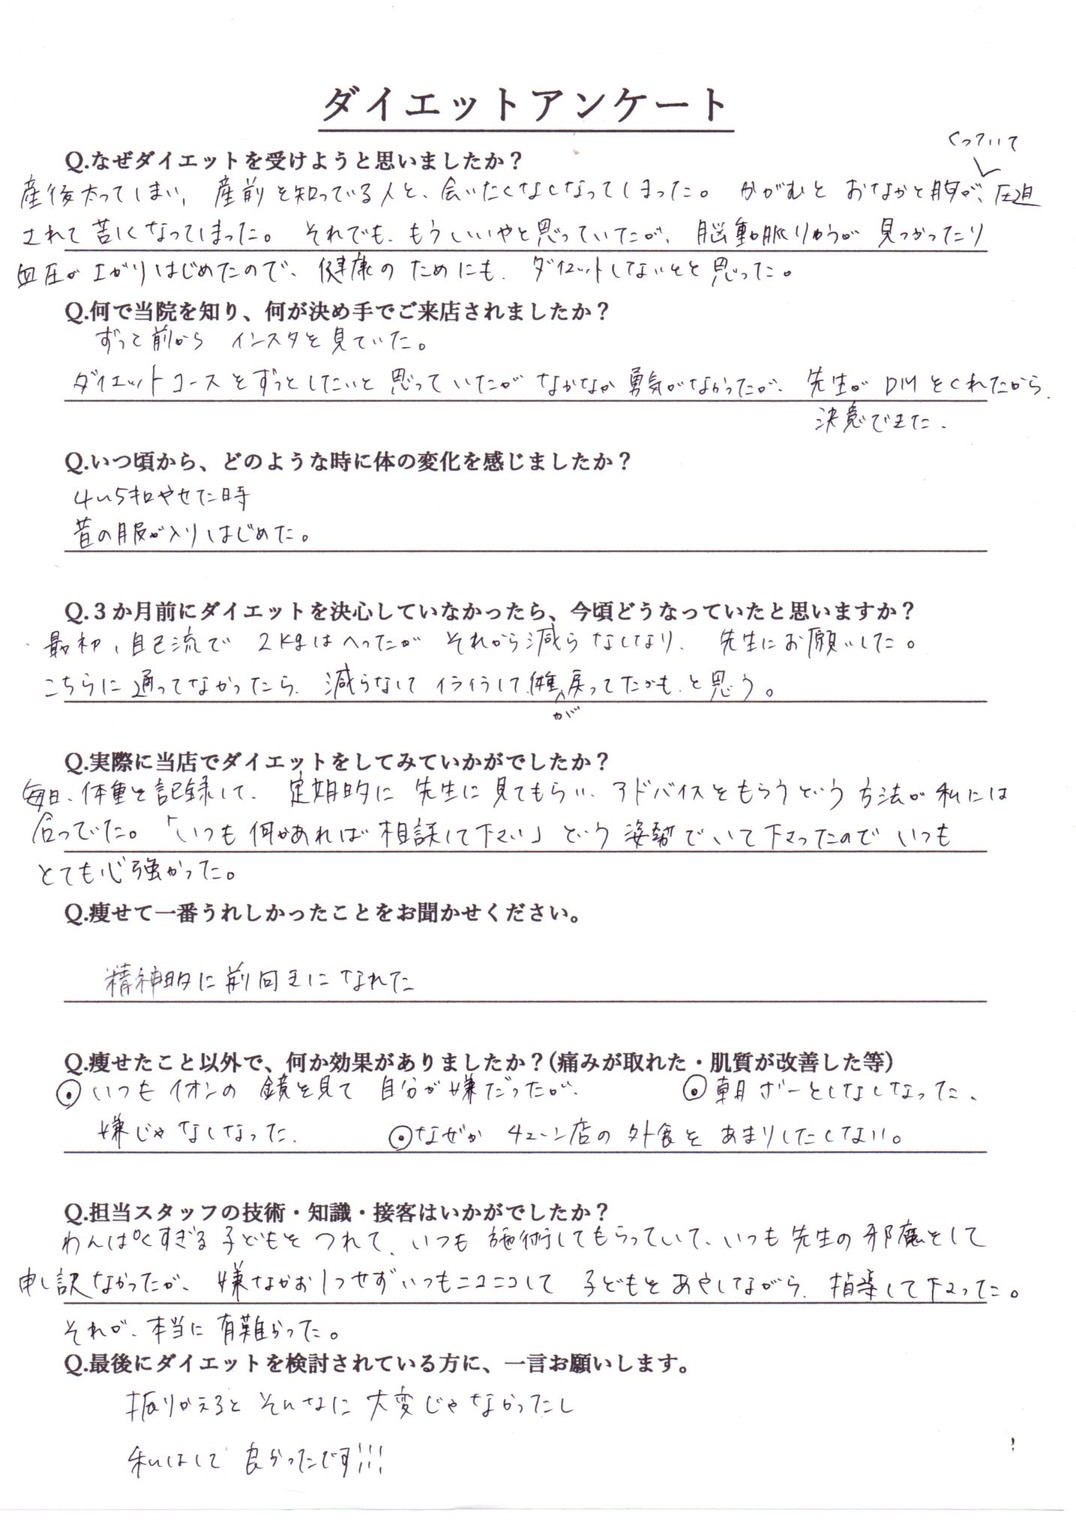 ダイエットアンケート
Q.なぜダイエットを受けようと思いましたか？
くっついて
産後太ってしまい、産前を知っている人と、会いたくなくなってしまった。かがむと おなかと胸が、圧迫
されて苦しくなってしまった。それでも、もういいやと思っていたが、脳動脈りゅうが 見つかったり
血圧が上がりはじめたので、健康のためにも、ダイエットしないとと思った。
Q.何で当院を知り、何が決め手でご来店されましたか？
ずっと前から インスタを見ていた。
ダイエットコースをずっとしたいと思っていたがなかなか勇気がなかったが、先生がDMをくれたから
決意できた。
Q.いつ頃から、どのような時に体の変化を感じましたか？
4〜5キロやせた時
昔の服が入りはじめた。
Q.３か月前にダイエットを決心していなかったら、今頃どうなっていたと思いますか？
最初、自己流で 2kgはへったが それから減らなくなり、先生にお願いした。
こちらに通ってなかったら、減らなくて イライラして体重が戻ってたかも、と思う。
Q.実際に当店でダイエットをしてみていかがでしたか？
毎日、体重を記録して、定期的に先生に見てもらい、アドバイスをもらうという方法が私には
合っていた。「いつも何かあれば相談して下さい」という姿勢でいて下さったので いつも
とても心強かった。
Q.痩せて一番うれしかったことをお聞かせください。
精神的に前向きになれた
Q.痩せたこと以外で、何か効果がありましたか？(痛みが取れた・肌質が改善した等)
◉いつもイオンの鏡を見て 自分が嫌だったが、 ◉朝ボーとしなくなった、
嫌じゃなくなった。 ◉なぜか チェーン店の外食を あまりしたくない。
Q.担当スタッフの技術・知識・接客はいかがでしたか？
わんぱくすぎる子どもをつれて、いつも施術してもらっていて、いつも先生の邪魔をして
申し訳なかったが、嫌なかお1つせずいつもニコニコして 子どもをあやしながら、指導して下さった。
それが、本当に有難かった。
Q.最後にダイエットを検討されている方に、一言お願いします。
振りかえると そんなに大変じゃなかったし
私はして良かったです!!!